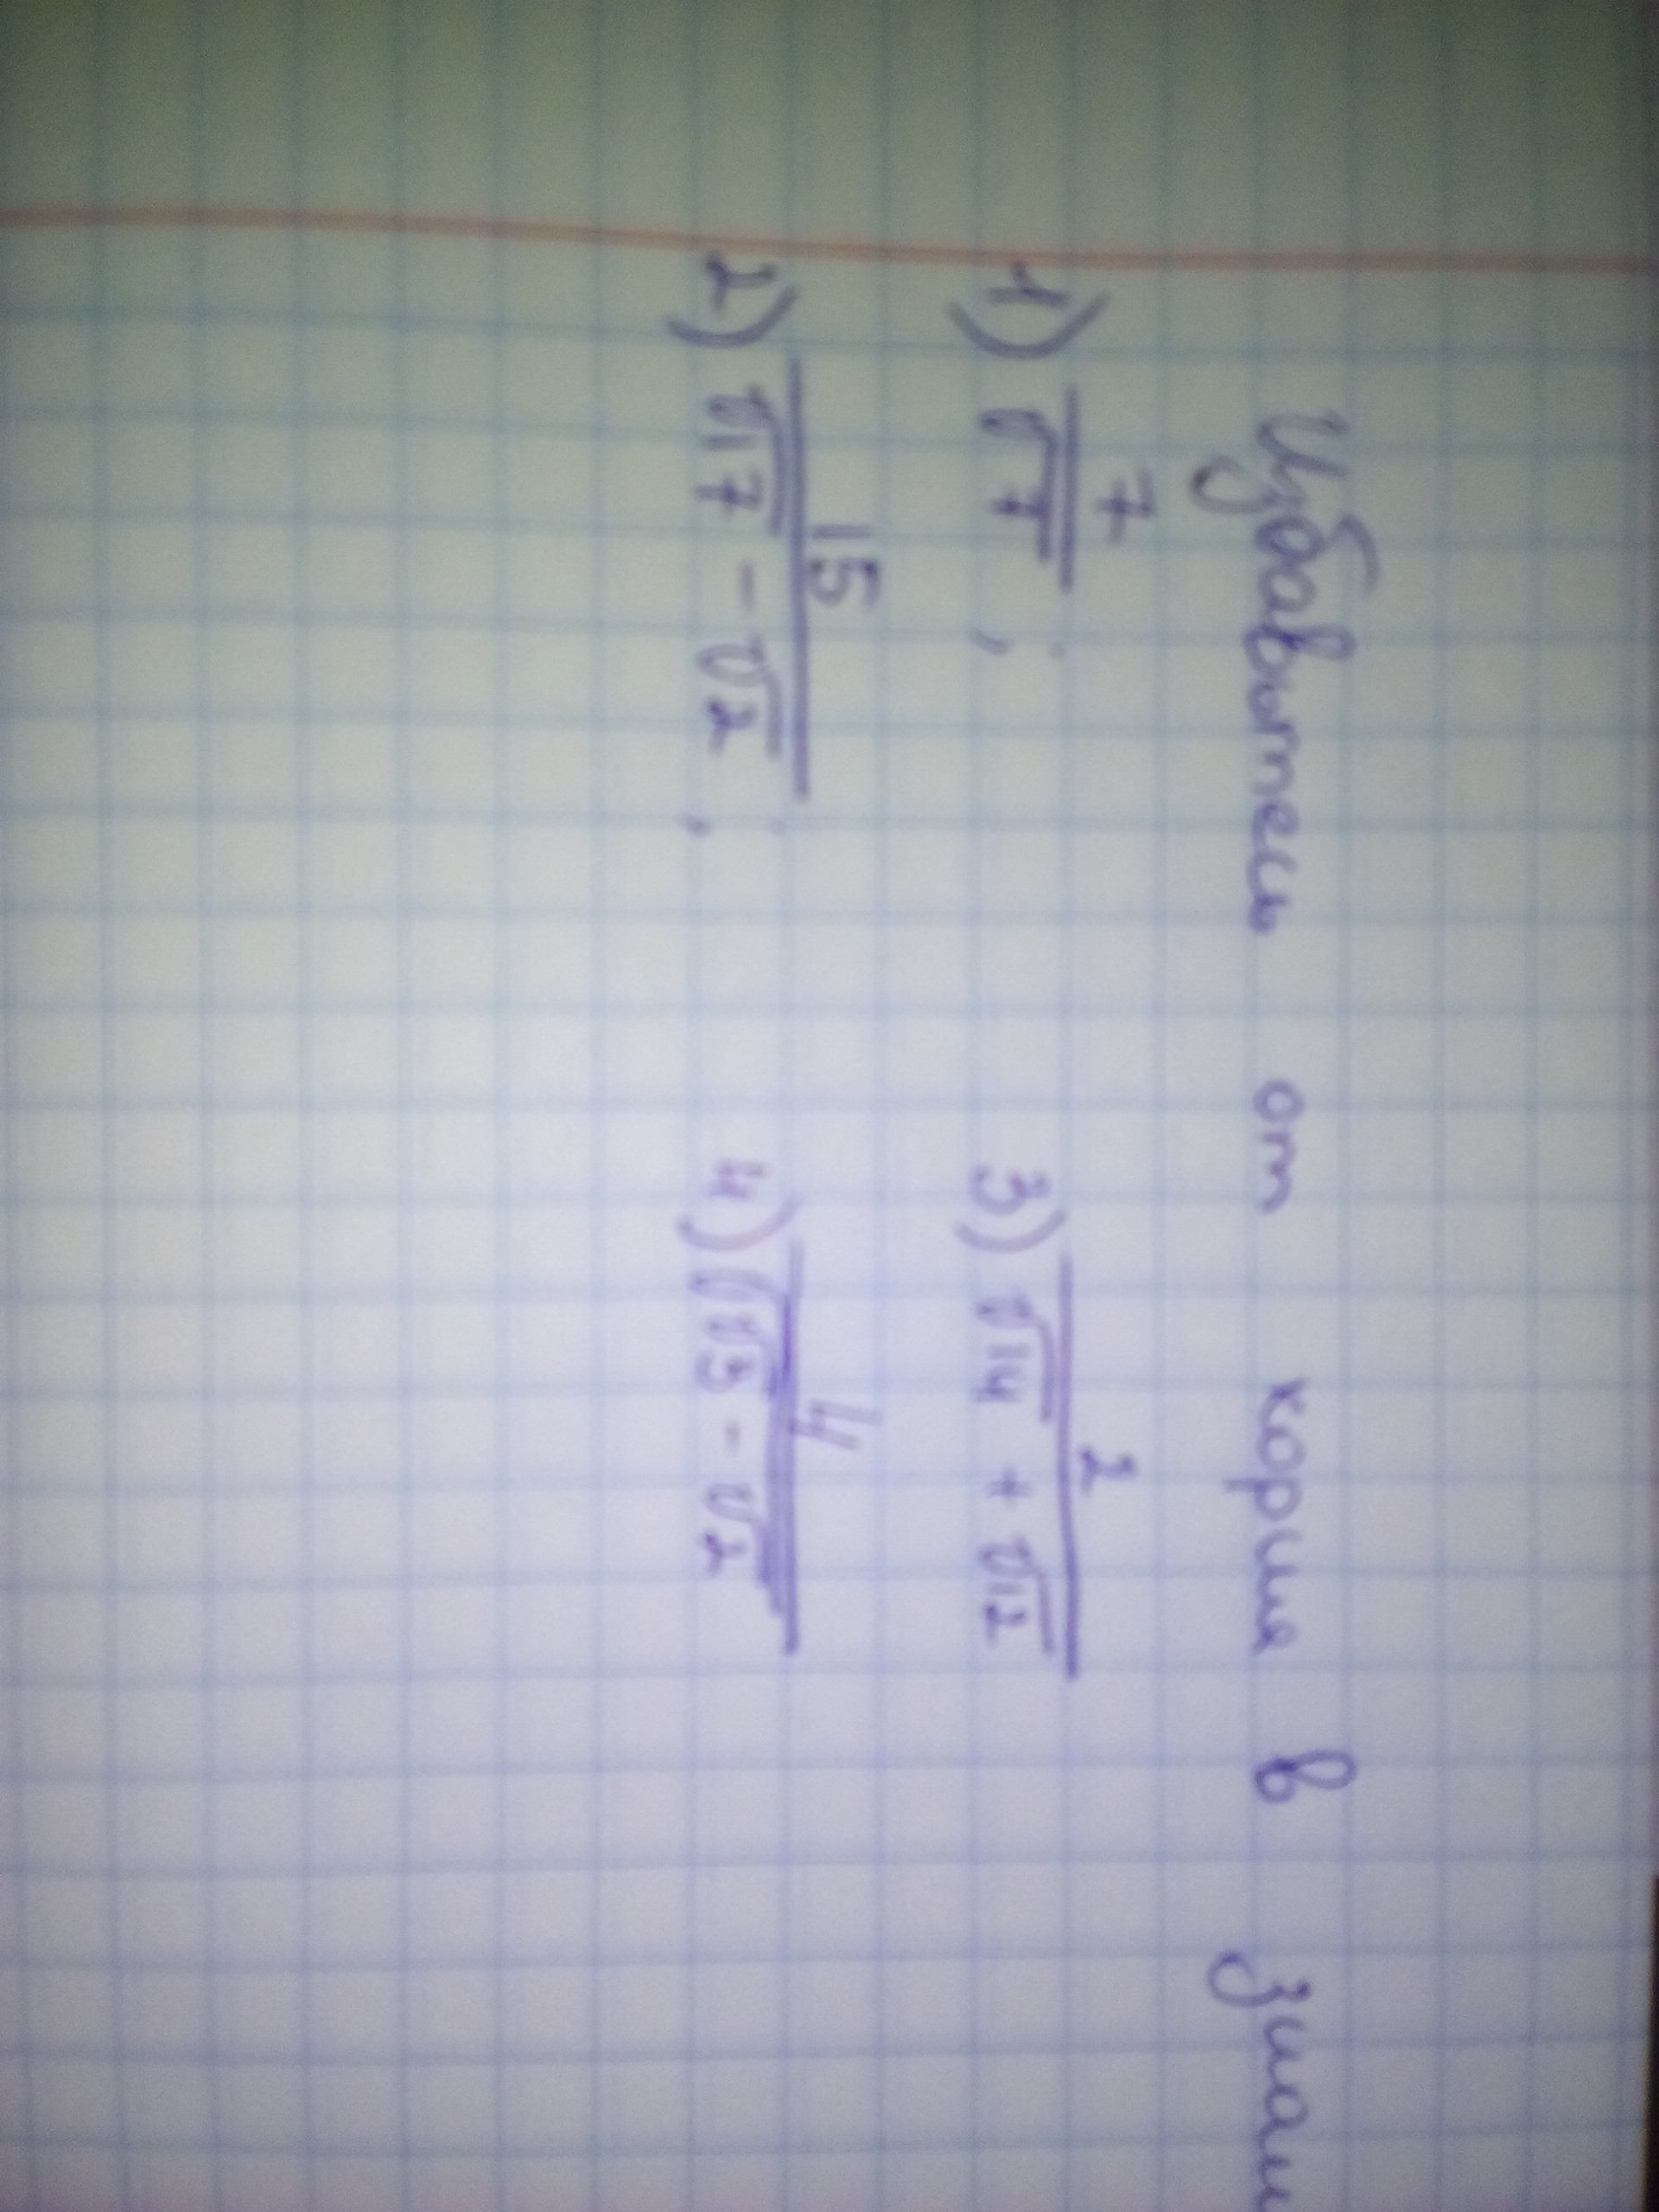 Избавьтесь от корня в знам
1) 7/√7 ; 3) 2/(√14 + √12)
2) 15/(√17 - √2) ; 4) 4/√(√3 - √2)